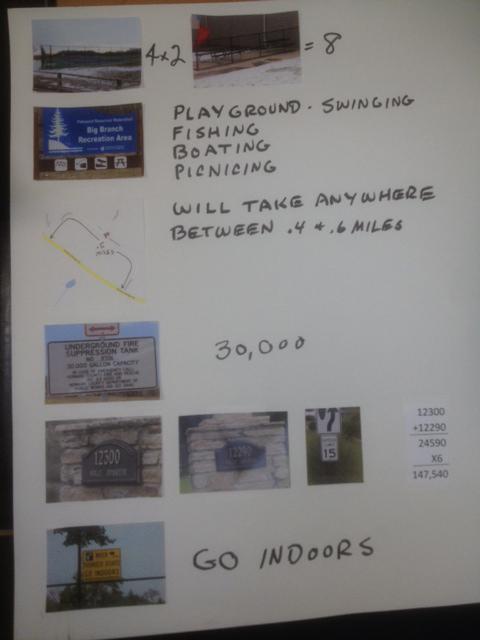 4x2
= 8
Big Branch
Recreation Area
PLAYGROUND. SWINGING
FISHING
BOATING
PICNICING
WILL TAKE ANYWHERE
BETWEEN .4 & .6 MILES
.5
MILES
UNDERGROUND FIRE
SUPPRESSION TANK
30,000 GALLON CAPACITY
30,000
12300
12290
15
12300
+12290
24590
X6
147,540
WHEN
THUNDER ROARS
GO INDOORS
GO INDOORS